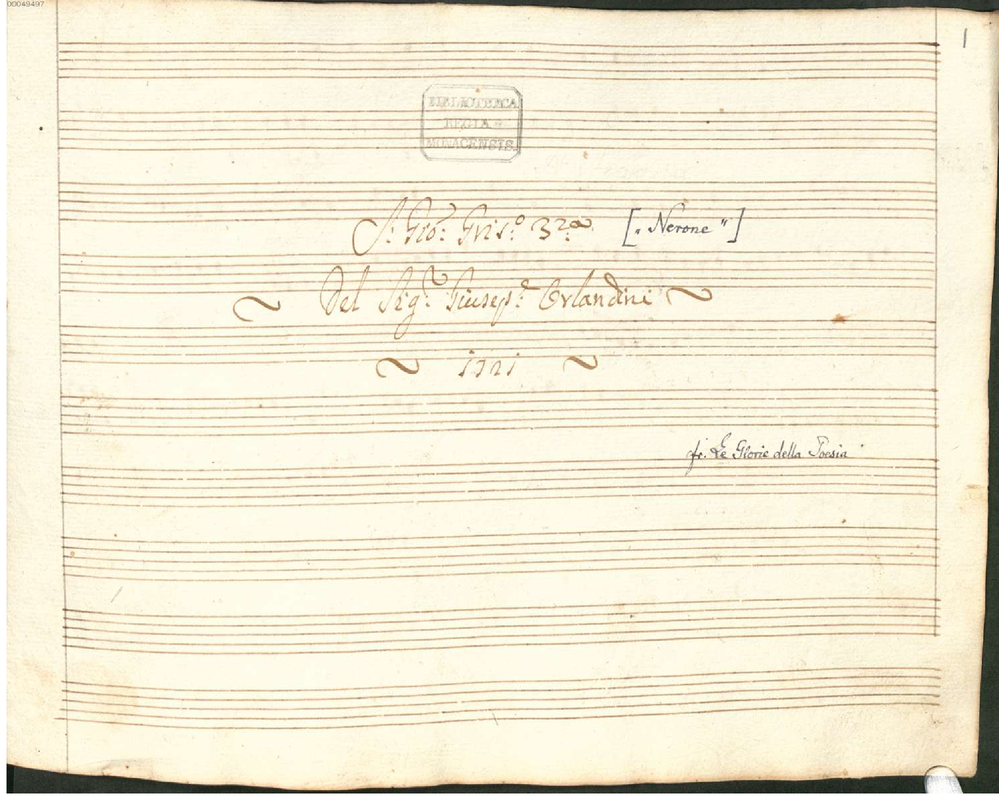 00049497
1
BIBLIOTHECA
REGIA
MONACENSIS.
S. Gio: Gris:º 3.za ["Nerone"]
~ Del Sig.r Giusep.e Orlandini ~
~ 1721 ~
fr. Le Glorie della Poesia